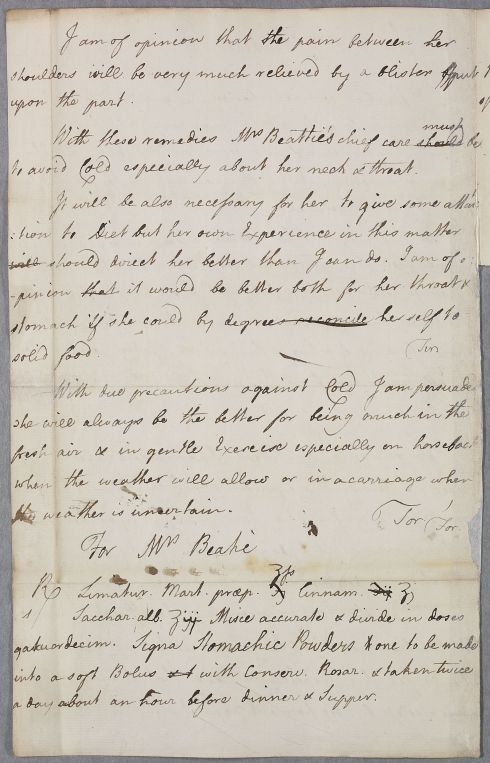 I am of opinion that the pain between her
shoulders will be very much relieved by a blister put
upon the part.
With these remedies Mrs Beattie's chief care should must be
to avoid Cold especially about her neck & throat.
It will be also necessary for her to give some atten
:tion to Diet but her own Experience in this matter
will should direct her better than I can do. I am of o:
-pinion that it would be better both for her throat &
stomach if she could by degrees reconcile herself to
solid food.
Tur
With due precautions against Cold I am persuade
she will always be the better for being much in the
fresh air & in gentle Exercise especially on horseback
when the weather will allow or in a carriage when
the weather is uncertain.
Tor For
For Mrs Beatie
R Limatur. Mart. præp. ʒfs Cinnam. ʒj
Sacchar. alb. ʒiij Misce accurate & divide in doses
quatuordecim. Signa Stomachic Powders & one to be made
into a soft Bolus with Conserv. Rosar. & taken twice
a day about an hour before dinner & Supper.